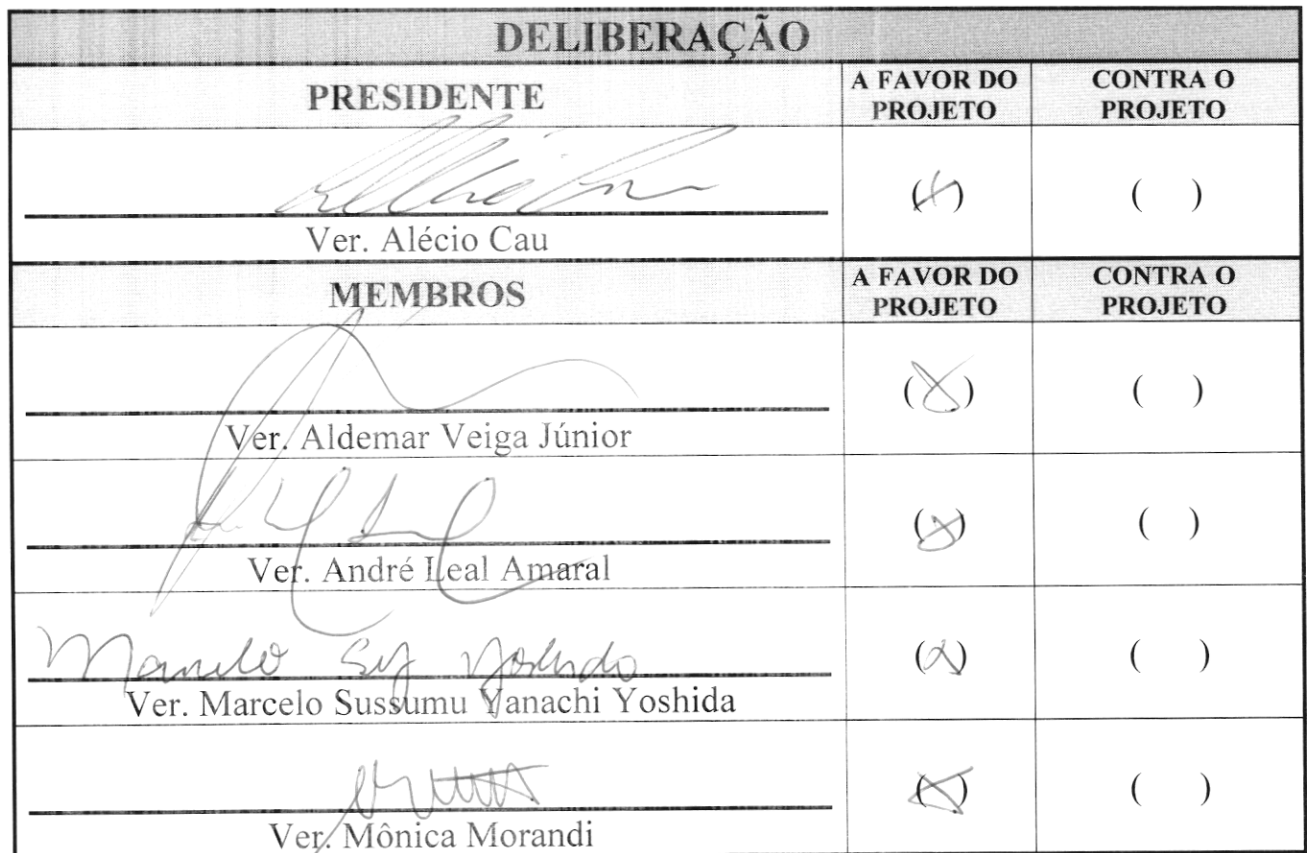 DELIBERAÇÃO
PRESIDENTE A FAVOR DO PROJETO CONTRA O PROJETO
(X) ( )
Ver. Alécio Cau
MEMBROS A FAVOR DO PROJETO CONTRA O PROJETO
(X) ( )
Ver. Aldemar Veiga Júnior
(X) ( )
Ver. André Leal Amaral
Marcelo Yoshida (X) ( )
Ver. Marcelo Sussumu Yanachi Yoshida
(X) ( )
Ver. Mônica Morandi